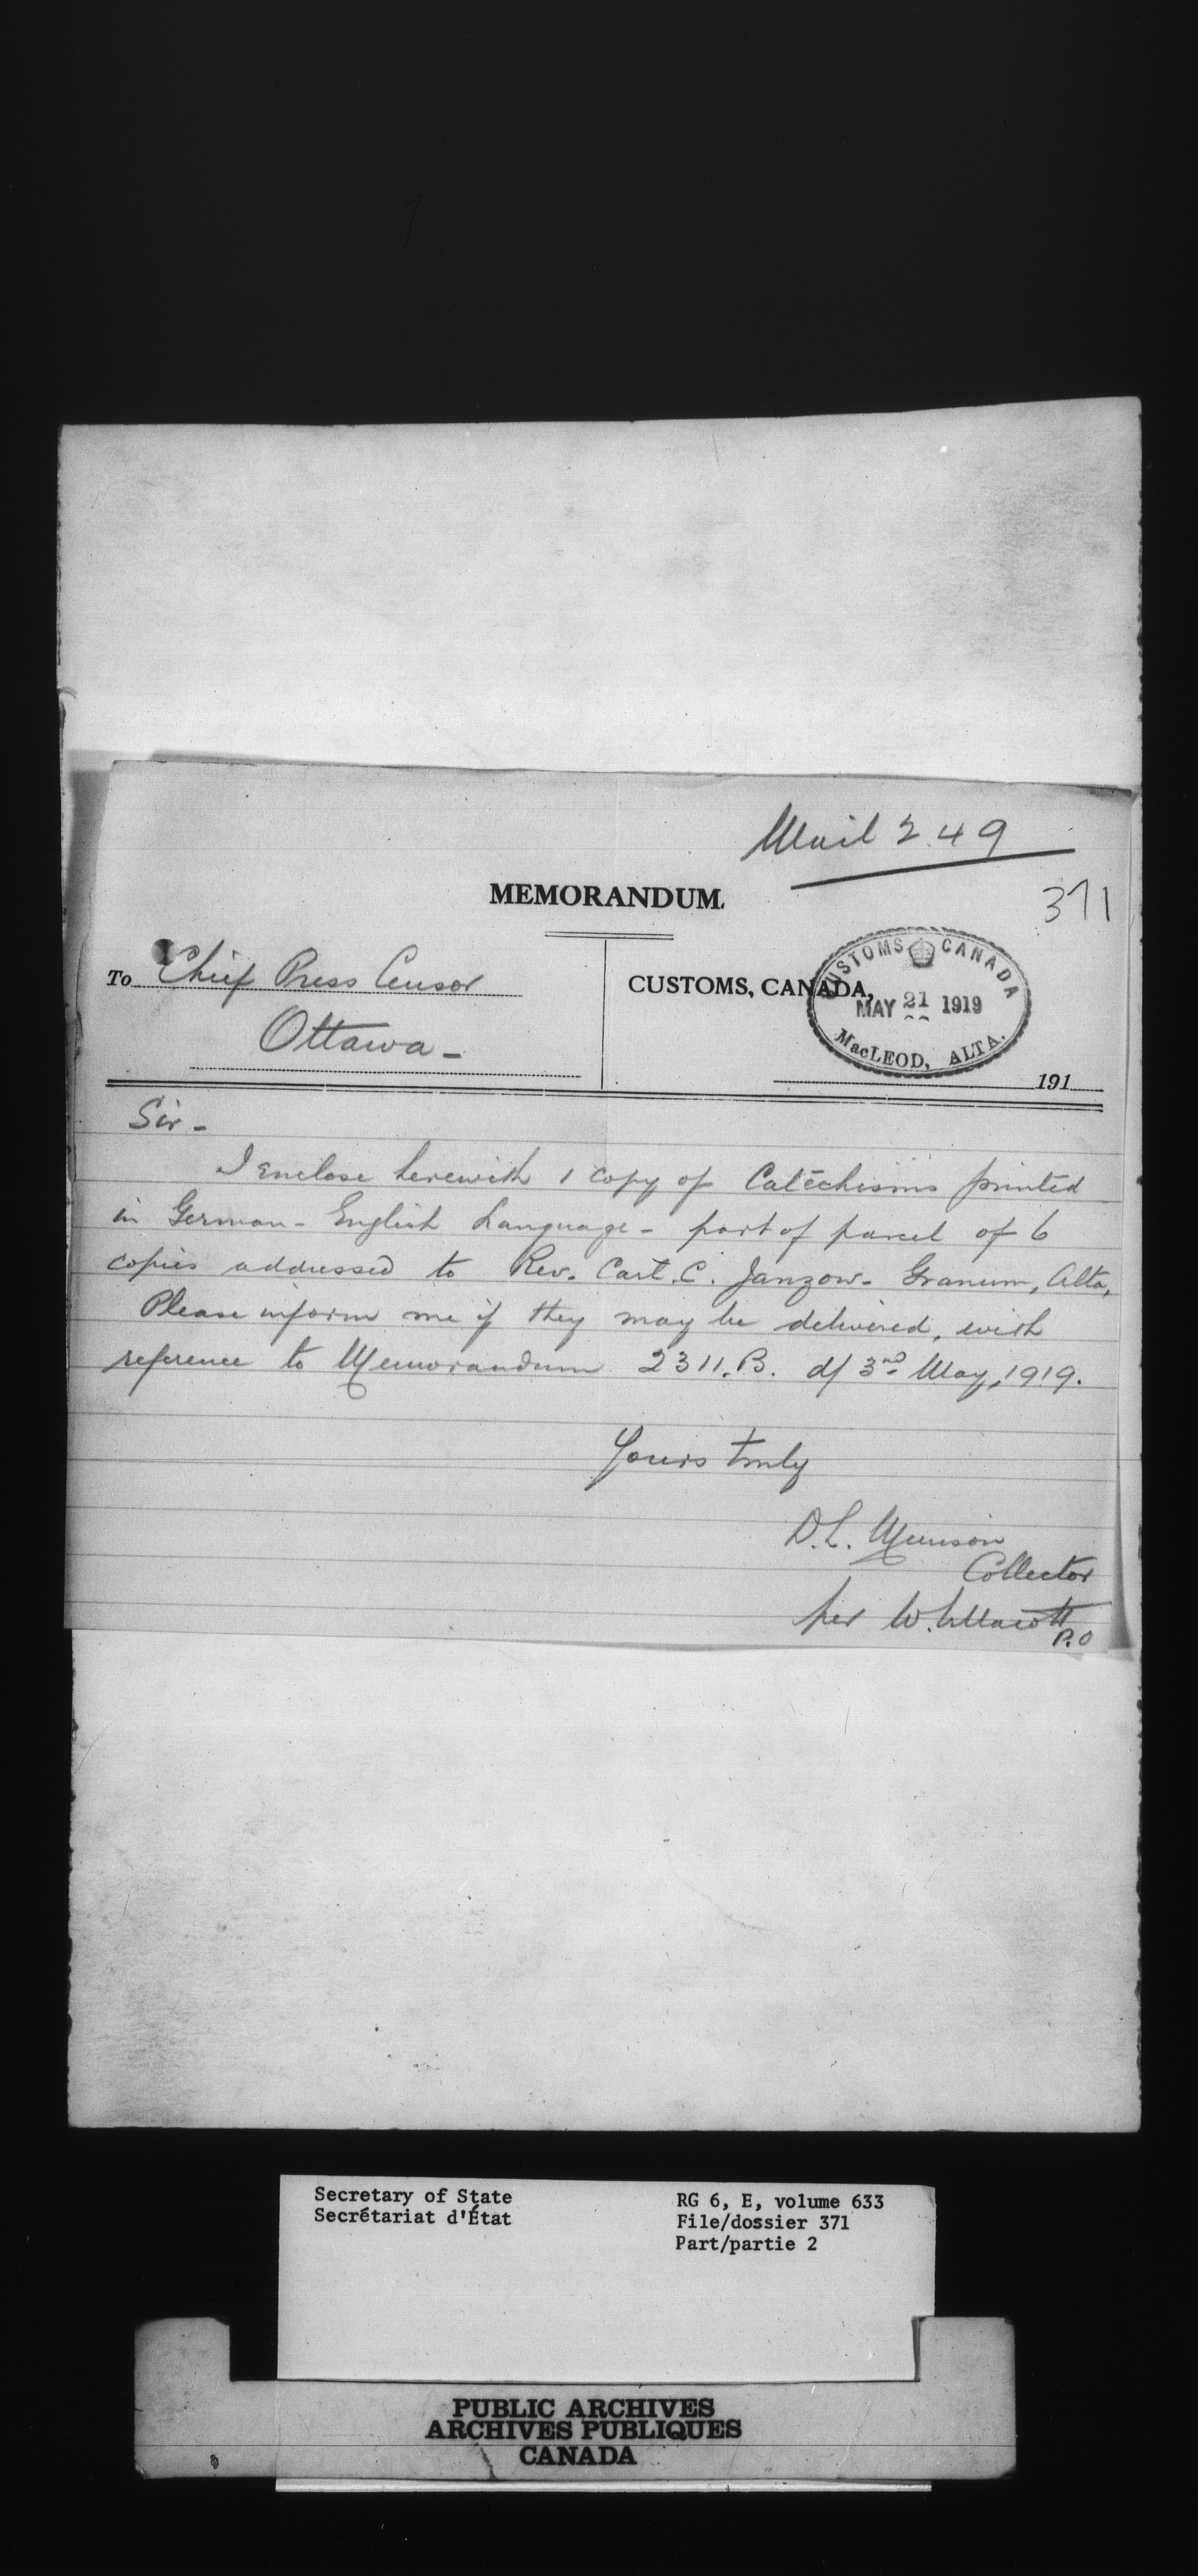 Mail 249
371
MEMORANDUM.
To Chief Press Censor
Ottawa -
CUSTOMS, CANADA,
CUSTOMS CANADA
MAY 21 1919
MacLEOD, ALTA.
191
Sir -
I enclose herewith 1 copy of Catechisms printed
in German - English Language - part of parcel of 6
copies addressed to Rev. Carl. C. Janzow - Granum, Alta,
Please inform me if they may be delivered, with
reference to Memorandum 2311.B. d/ 3nd May, 1919.
Yours truly
D.L. Munson
Collector
per W.
P.O
Secretary of State
Secrétariat d'État
RG 6, E, volume 633
File/dossier 371
Part/partie 2
PUBLIC ARCHIVES
ARCHIVES PUBLIQUES
CANADA